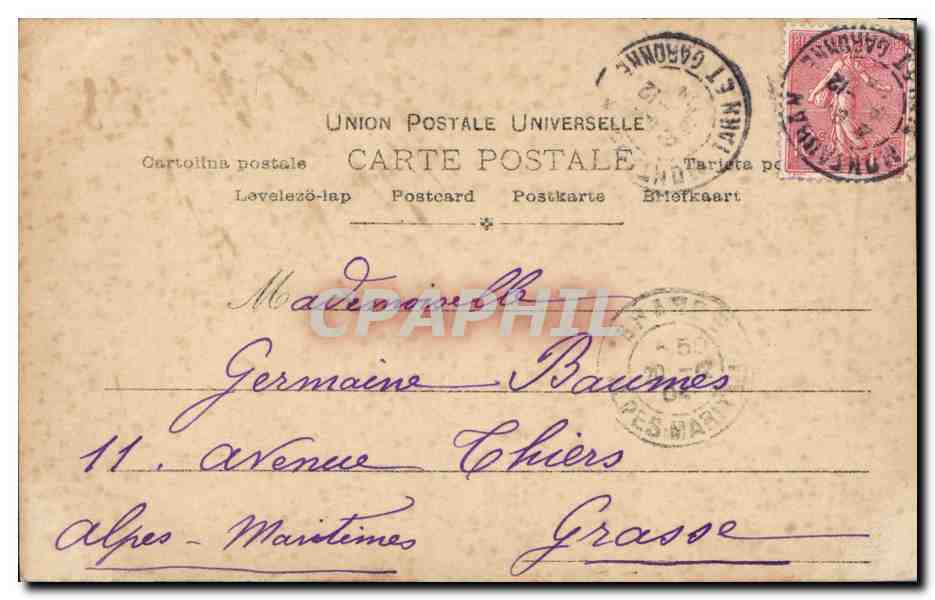 UNION POSTALE UNIVERSELLE
CARTE POSTALE
Cartolina postale
Tarjeta po
Levelezö-lap Postcard Postkarte Briefkaart
TARN ET GARONNE
MONTAUBAN
ET GARONNE
12
CPAPHIL
Mademoiselle
Germaine Baumes
11. avenue Thiers
Alpes - Maritimes Grasse
PES-MARIT